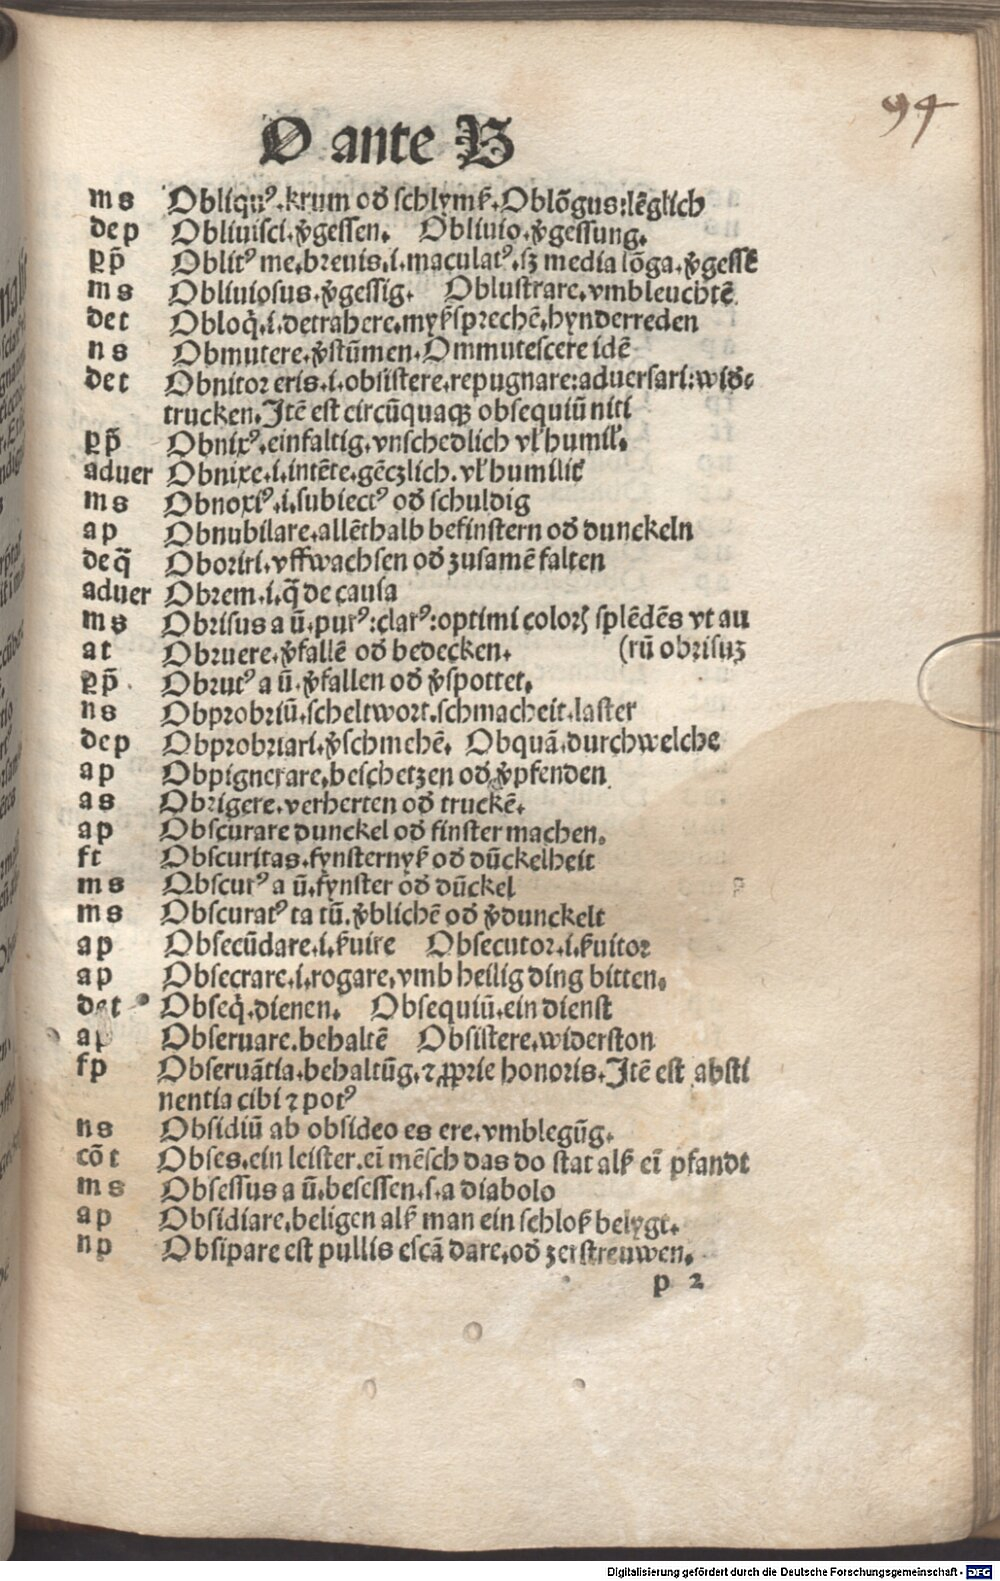 94
O ante B
ms Obliquꝰ.krum od̛ schlymk̛.Oblõgus:lẽglich
dep Obliuisci.v̛gessen. Obliuio.v̛gessung.
ꝑp̄ Oblitꝰ me.breuis.i.maculatꝰ.sꝫ media lõga.v̛gessẽ
ms Obliuiosus.v̛gessig. Oblustrare.vmbleuchtẽ.
det Obloq̇.i.detrahere.myſ̛sprechẽ.hynderreden
ns Obmutere.v̛stũmen.Ommutescere idẽ
det Obnitor eris.i.obsistere.repugnare:aduersari:wid̛-
trucken.Itẽ est circũquaqꝫ obsequiũ niti
ꝑp̄ Obnixꝰ.einfaltig.vnschedlich vl̛ humil̛.
aduer Obnixe.i.intẽte.gẽczlich.vl̛ humilit̛
ms Obnoxiꝰ.i.subiectꝰ od̛ schuldig
ap Obnubilare.allẽthalb befinstern od̛ dunckeln
deq̄ Oboriri.vffwachsen od̛ zusamẽ falten
aduer Obrem.i.q̄ de causa
ms Obrisus a ũ.purꝰ:clarꝰ:optimi colorꝭ splẽdẽs vt au
at Obruere.v̛fallẽ od̛ bedecken. (rũ obrisuꝫ
ꝑp̄. Obrutꝰ a ũ.v̛fallen od̛ v̛spottet.
ns Obprobriũ.scheltwort.schmacheit.laster
dep Obprobriari.v̛schmehẽ. Obquã.durchwelche
ap Obpignerare.beschetzen od̛ v̛pfenden
as Obrigere.verherten od̛ truckẽ.
ap Obscurare dunckel od̛ finster machen.
ft Obscuritas.fynsternyſ̛ od̛ dũckelheit
ms Obscurꝰ a ũ.fynster od̛ dũckel
ms Obscuratꝰ ta tũ.v̛blichẽ od̛ v̛dunckelt
ap Obsecũdare.i.s̛uire Obsecutor.i.s̛uitor
ap Obsecrare.i.rogare.vmb heilig ding bitten.
det Obseq̇.dienen. Obsequiũ.ein dienst
ap Obseruare.behaltẽ Obsistere.widerston
fp Obseruãtia.behaltũg.⁊ ꝓprie honoris.Itẽ est absti
nentia cibi ⁊ potꝰ
ns Obsidiũ ab obsideo es ere.vmblegũg.
cõt Obses.ein leister.eĩ mẽsch das do stat alſ̛ eĩ pfandt
ms Obsessus a ũ.besessen.s.a diabolo
ap Obsidiare.beligen alſ̛ man ein schloſ̛ belygt.
np Obsipare est pullis escã dare.od̛ zerstreuwen.
p 2
Digitalisierung gefördert durch die Deutsche Forschungsgemeinschaft - DFG